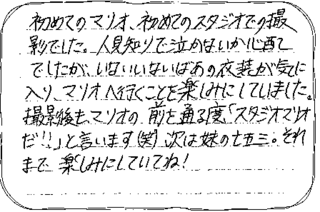 初めてのマリオ、初めてのスタジオでの撮
影でした。人見知りで泣かないか心配で
でしたが、いないいないばあの衣装が気に
入り、マリオへ行くことを楽しみにしていました。
撮影後も、マリオの前を通る度「スタジオマリオ
だ!!」と言います(笑) 次は妹の七五三。それ
まで楽しみにしていてね!